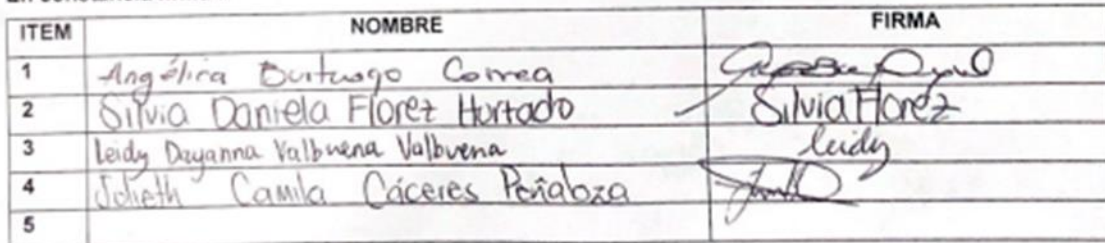 ITEM NOMBRE FIRMA
1 Angélica Buitrago Correa
2 Silvia Daniela Florez Hurtado Silvia Florez
3 Leidy Dayanna Valbuena Valbuena leidy
4 Julieth Camila Cáceres Peñaloza
5